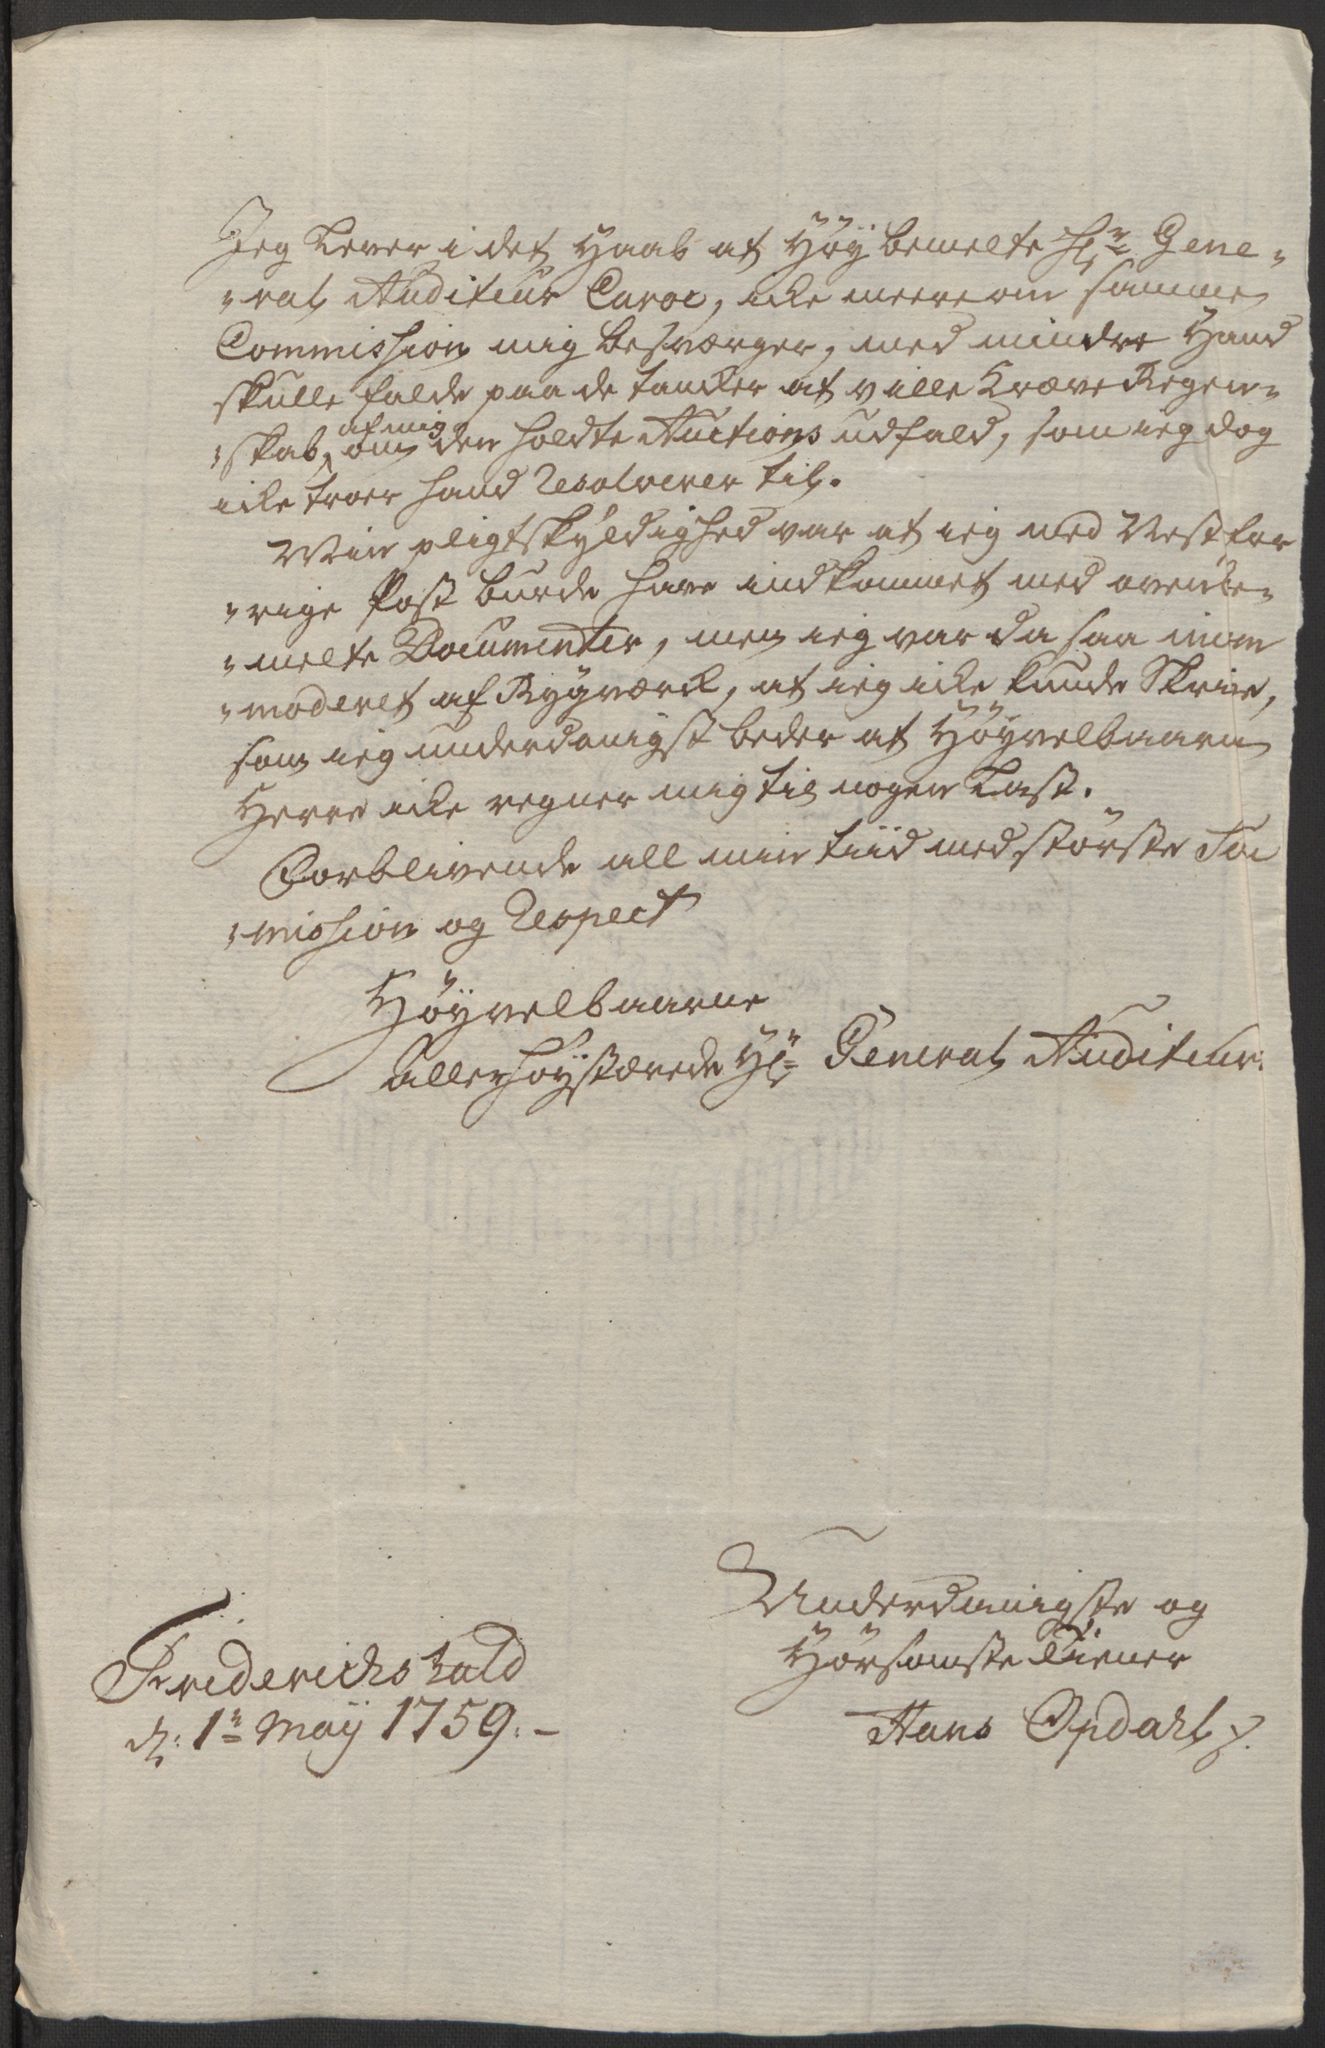 Jeg Lever i det Haab at Høÿ bemelte Hr. Gene-
-ral Auditeur Caroc, icke meere om samme
Commission mig besværger, med mindre Hand
skulle falde paa de tancker at ville Kræve Regen-
af mig
-skab, om den holdte Auctions udfald, som ieg dog
icke troer hand Resolverer til.
Min pligtskÿldighed var at ieg med Nestfor
-rige Post burde have indkommet med ovenbe-
-melte Documenter, men ieg var da saa incom
-moderet af Rÿgværck, at ieg icke kunde Skrive,
som ieg underdanigst beder at Høÿvelbaarn
Herre icke regner mig til nogen Last.
Forblivende all min tiid med største Sou
-mission og Respect
Høÿvelbaarne
Allerhøÿstærede Hr. General Auditeur.
Underdanigste og
Hørsomste Tiener
Hans Opdahl
Friderichshald
d: 1n Maÿ 1759.-